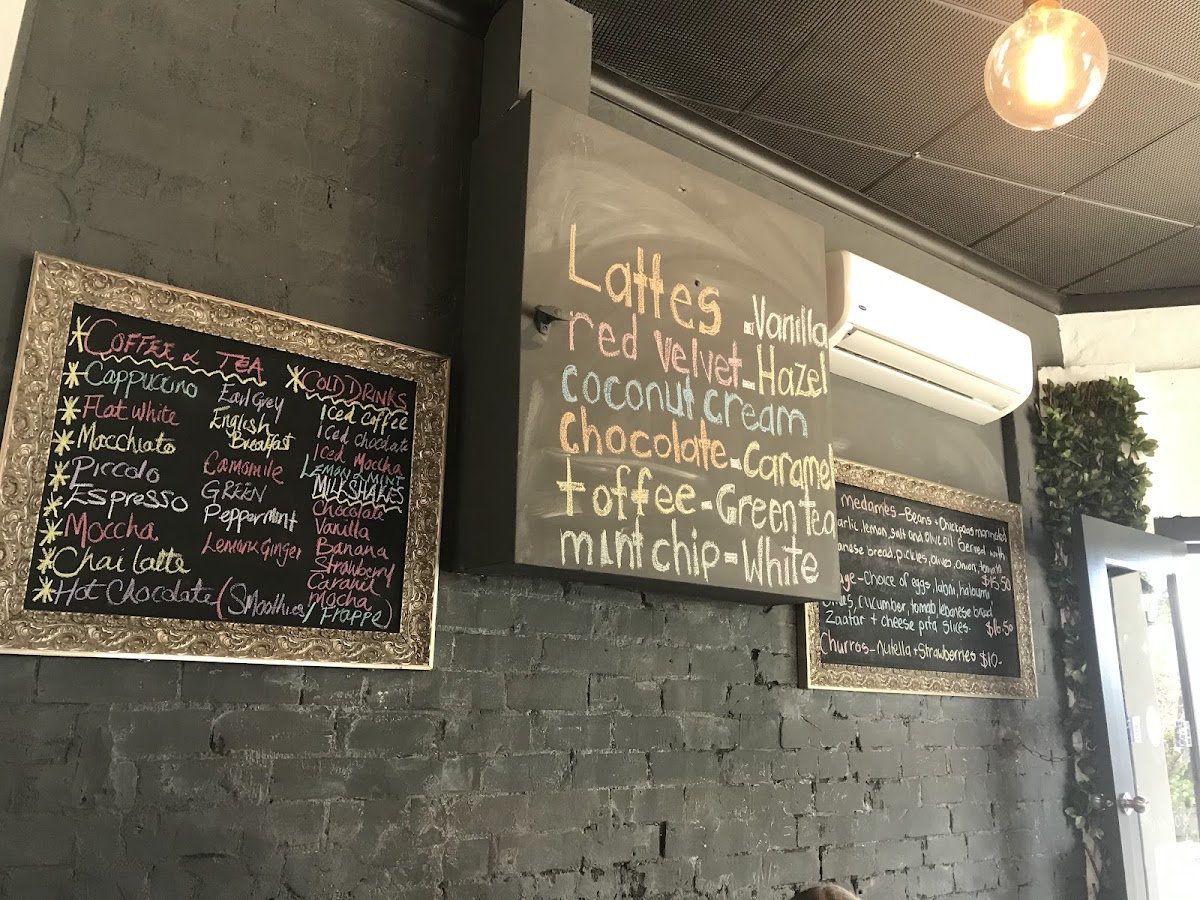 COFFEE & TEA
Cappuccino
Flat white
Macchiato
Piccolo
Espresso
Moccha
Chai latte
Hot Chocolate
Earl Grey
English
Breakfast
Camomile
GREEN
Peppermint
Lemon & Ginger
COLD DRINKS
Iced Coffee
Iced chocolate
Iced Moccha
LEMON MINT
MILKSHAKES
Chocolate
Vanilla
Banana
Strawberry
Caramel
mocha
(Smoothies/Frappe)
Lattes - Vanilla
red velvet - Hazel
coconut cream
chocolate - caramel
toffee - Green tea
mint chip - White
medames - Beans + Chickpeas marinated
garlic, lemon, salt and olive oil Served with
bread, pickles, olives, onion, tomato
$15.50
- Choice of eggs, labni, haloumi
cucumber, tomato lebanese bread
Zaatar + cheese pita slices. $16.50
Churros - Nutella + Strawberries $10-